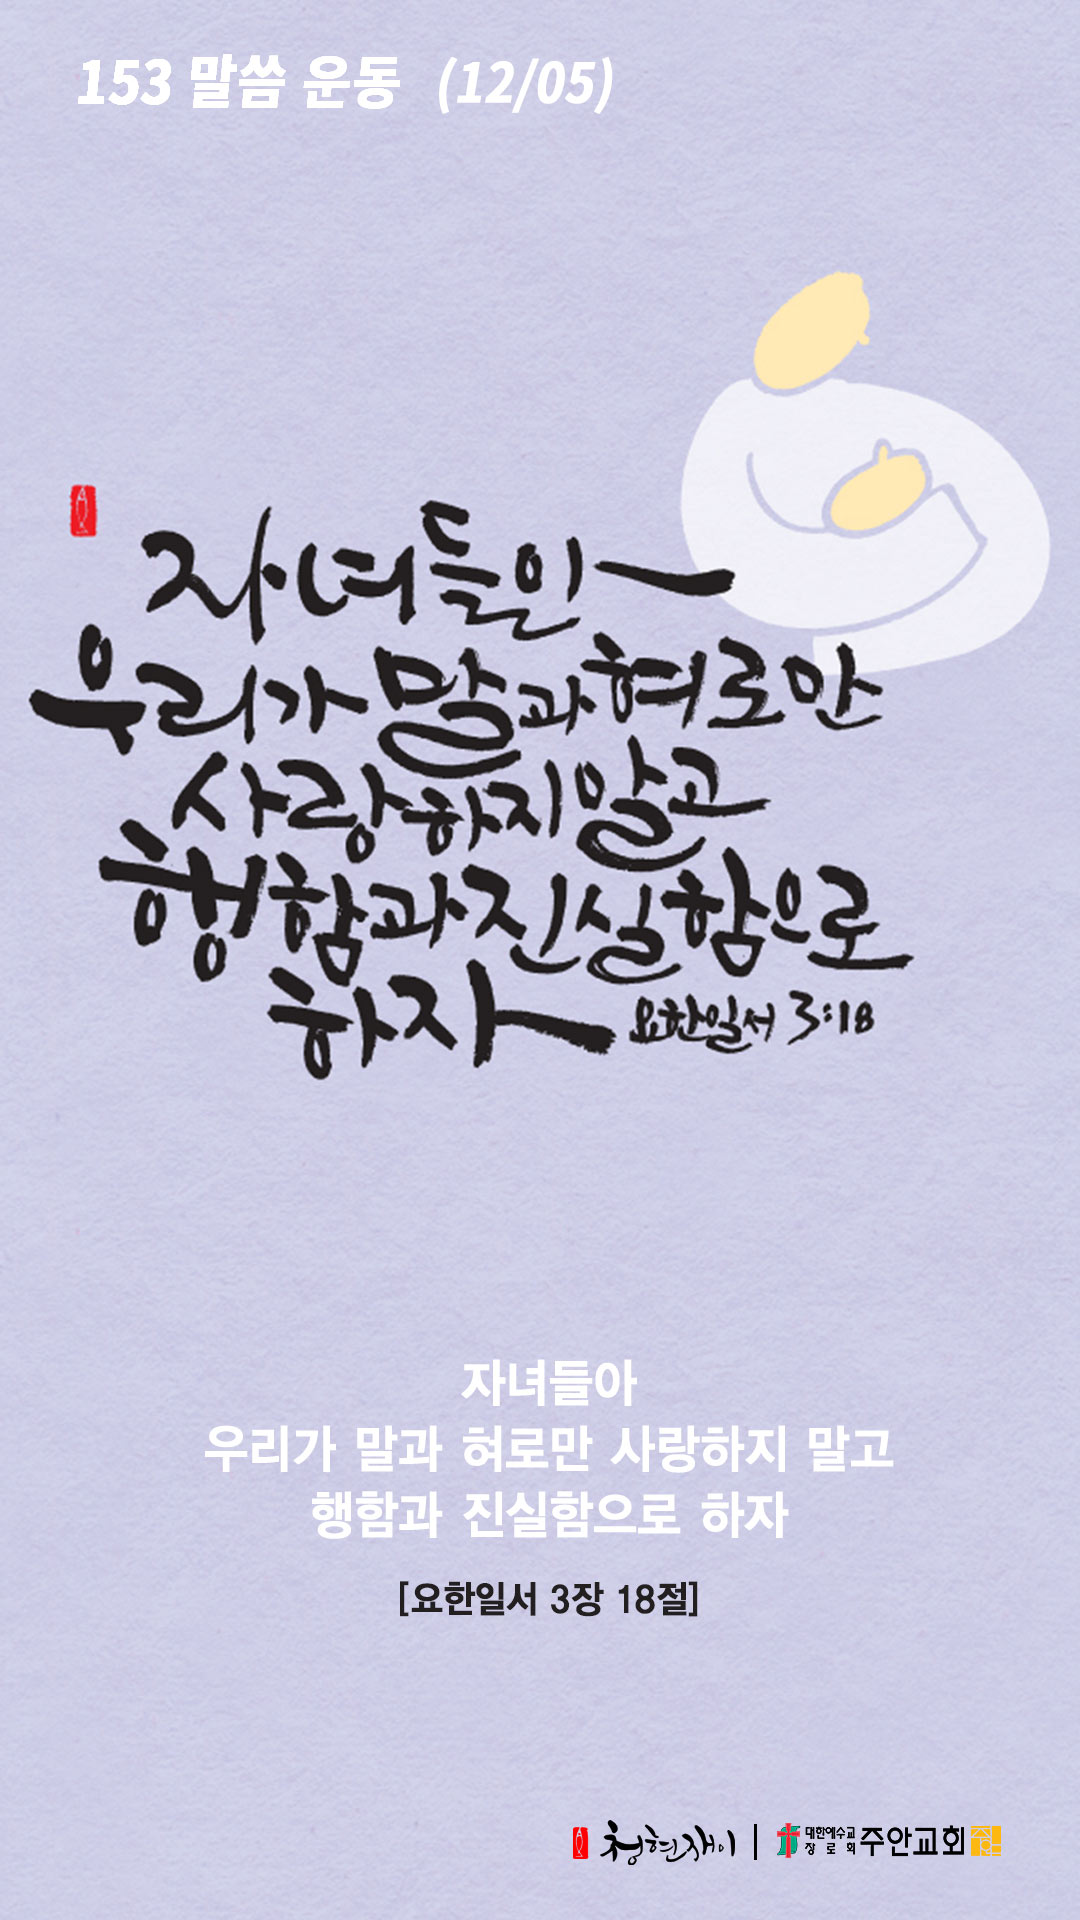 153 말씀 운동 (12/05)
자녀들아
우리가 말과 혀로만
사랑하지 말고
행함과 진실함으로
하자 요한일서 3:18
자녀들아
우리가 말과 혀로만 사랑하지 말고
행함과 진실함으로 하자
[요한일서 3장 18절]
청현재이 | 대한예수교 장로회 주안교회